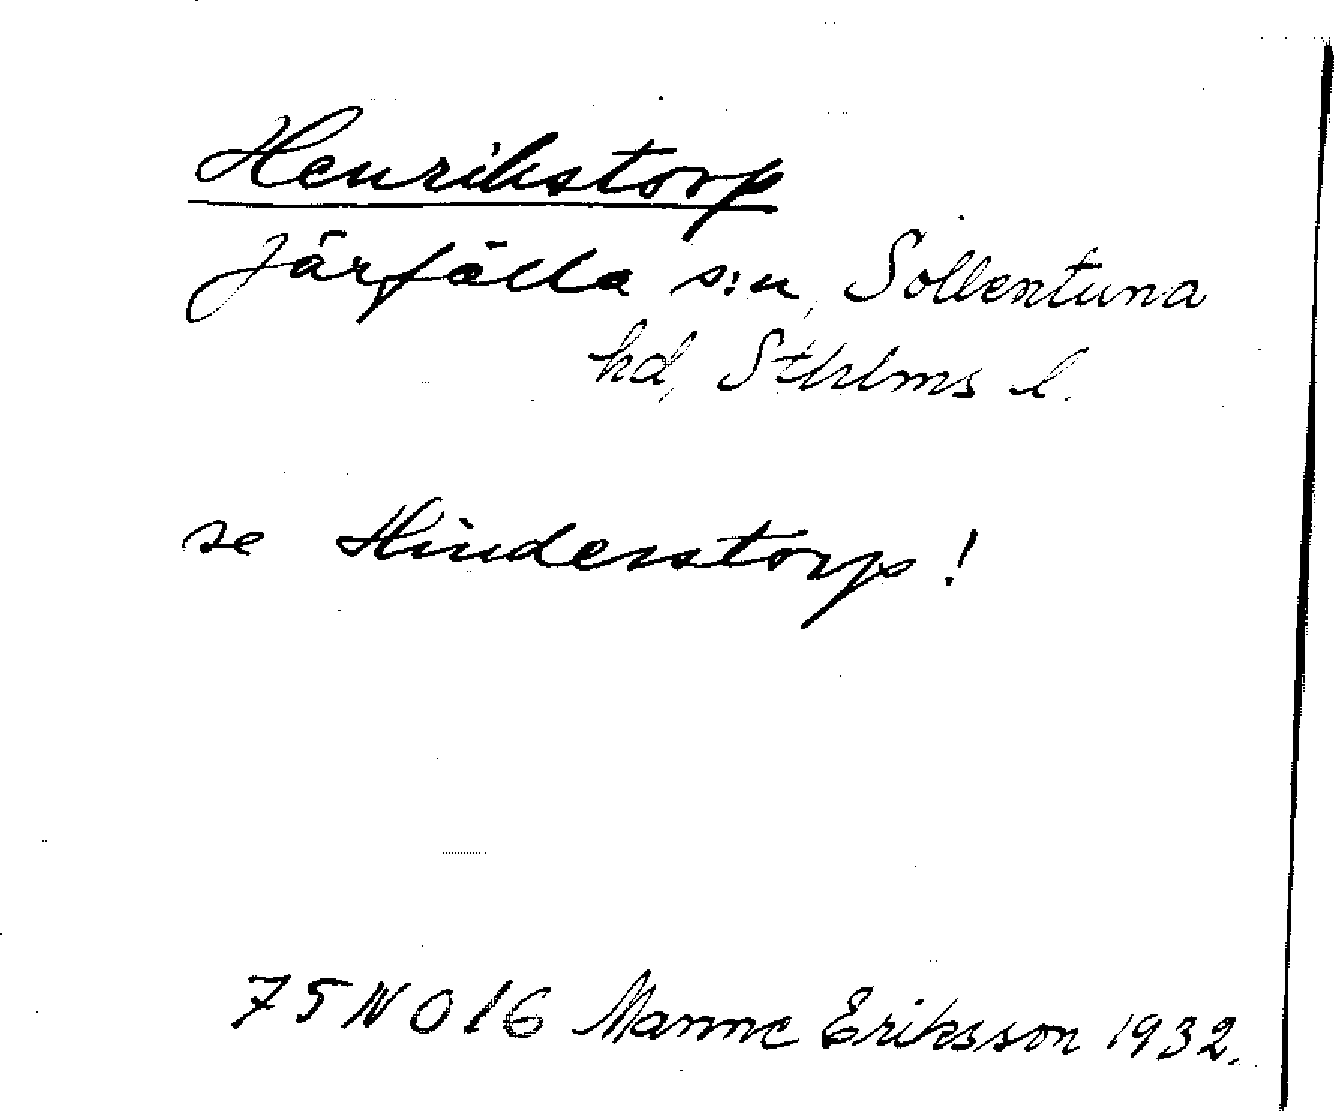 Henrikstorp
Järfälla s:n, Sollentuna
hd, Sthlms l.
se Hinderstorp!
75 NO 16 Manne Eriksson 1932.